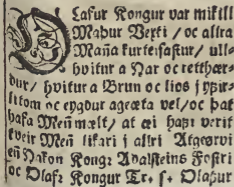 OLafur Kongur var mikill
Madur Verti / oc allra
Mańa kurteisastur / ull-
hvitur a Har oc retthær-
dur / hvitura Brun oc lios j yfir-
litom oc eygdur agæta vel / oc þat
hafa Meń mælt / at ei haꝼı verit
tveir Meń likari j allri Atgørvi
eń Hakon Kongꝛ Adalsteins Fostri
oc Olafꝛ Kongur Tr. s. Olafur